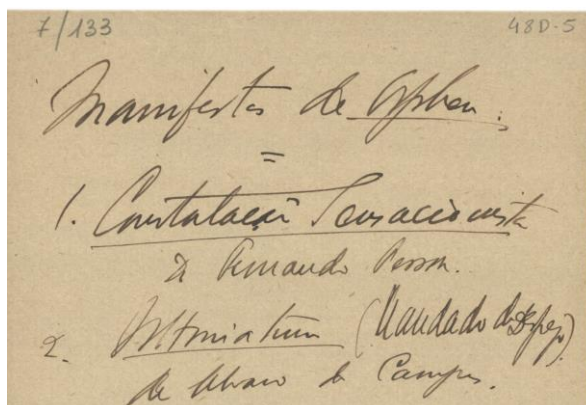 7/133 48D-5
Manifestos de Orpheu.
=
1. Constatação Sensacionista
de Fernando Pessoa.
2. Ultimatum (Mandado de Despejo)
de Alvaro de Campos.